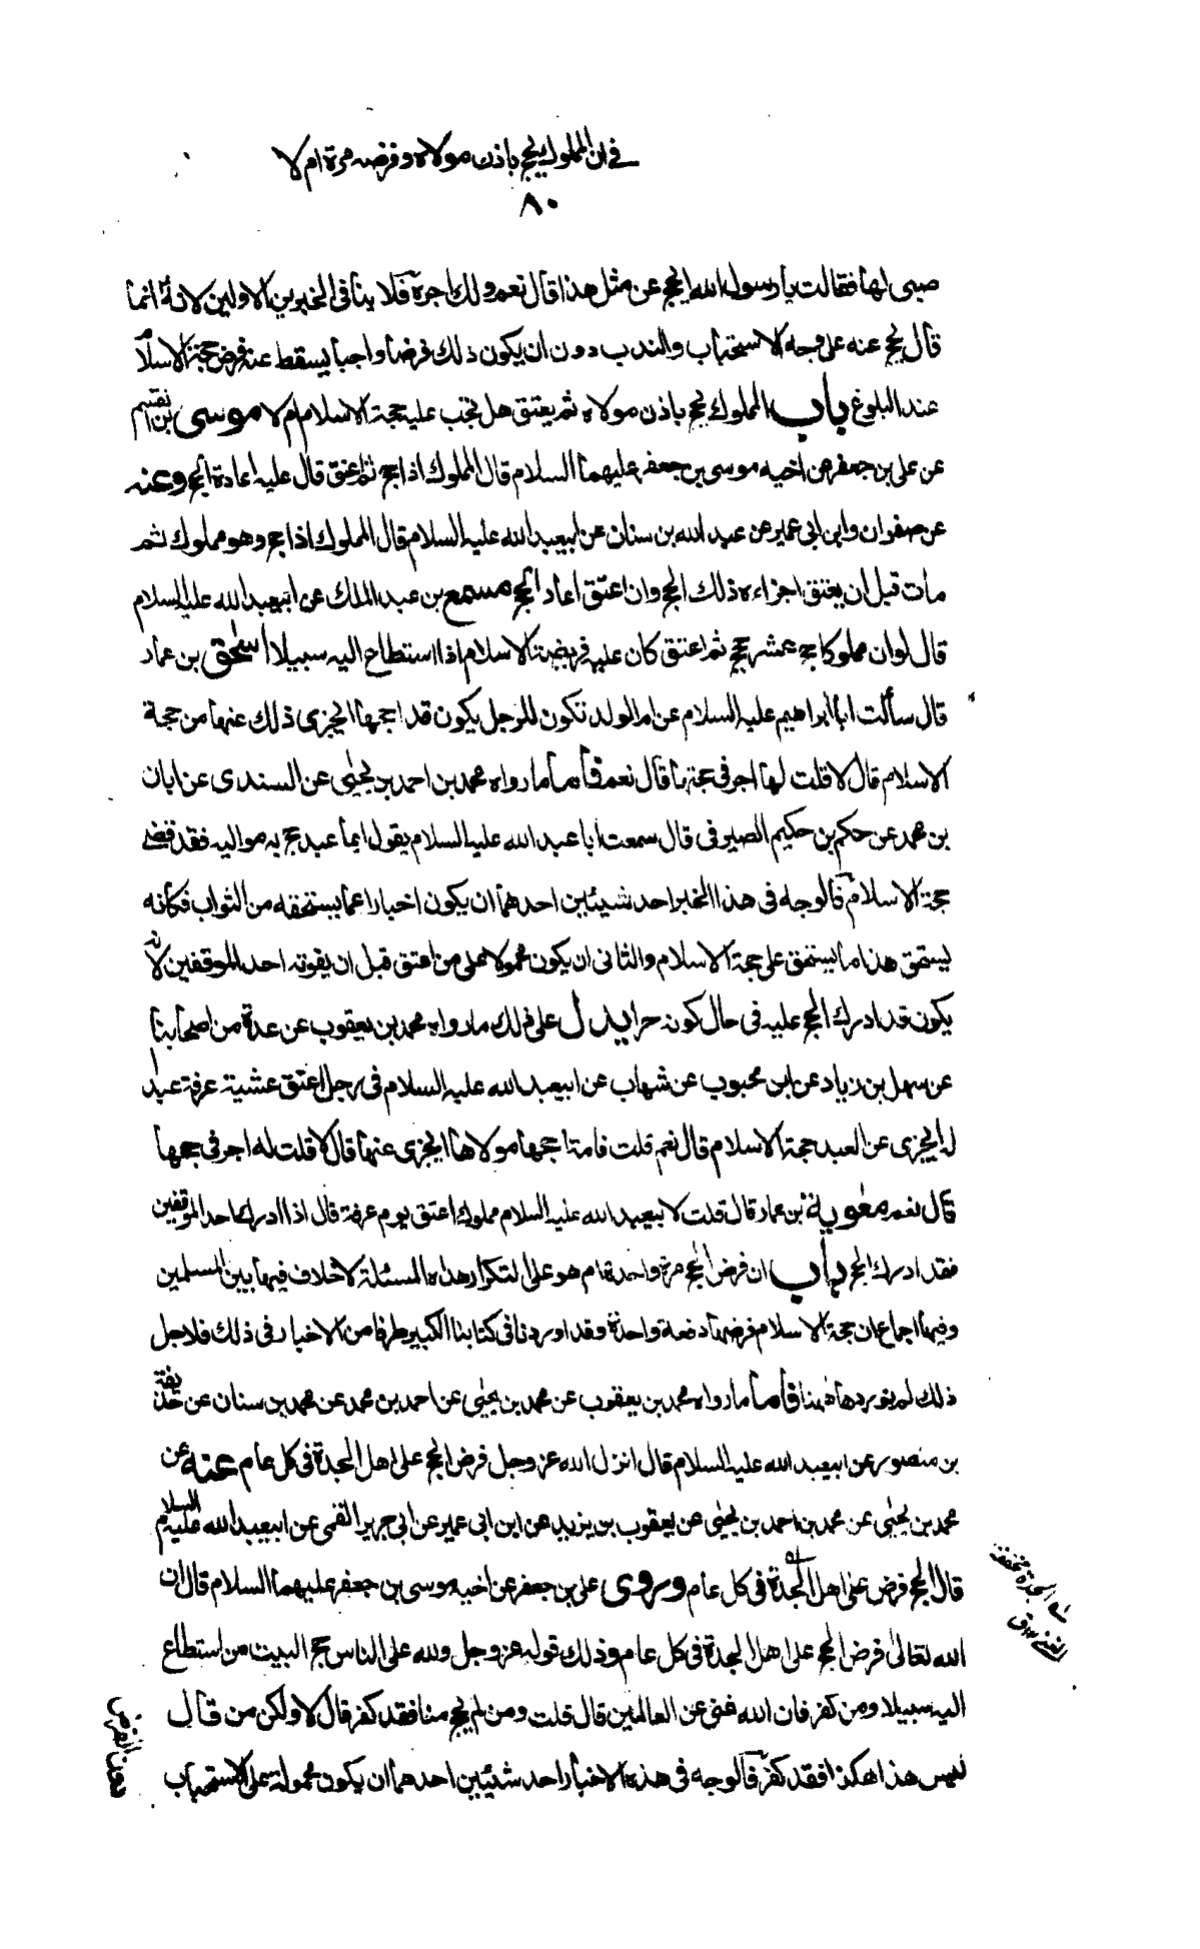 في ان المملوك يحج باذن مولاه وفرضه مرة ام لا
٨٠
صبى لها فقالت يا رسول الله ايحج عن مثل هذا قال نعم ولك اجره فلا ينافى الخبرين الاولين لانه انما
قال يحج عنه على وجه الاستحباب والندب دون ان يكون ذلك فرضا واجبا يسقط عنه فرض حجة الاسلام
عند البلوغ باب المملوك يحج باذن مولاه ثم يعتق هل تجب عليه حجة الاسلام ام لا موسى بن القسم
عن على بن جعفر عن اخيه موسى بن جعفر عليهما السلام قال المملوك اذا حج ثم اعتق قال عليه اعادة الحج وعنه
عن صفوان وابن ابى عمير عن عبد الله بن سنان عن ابيعبد الله عليه السلام قال المملوك اذا حج وهو مملوك ثم
مات قبل ان يعتق اجزاءه ذلك الحج وان اعتق اعاد الحج مسمع بن عبد الملك عن ابيعبد الله عليه السلام
قال لو ان مملوكا حج عشر حجج ثم اعتق كان عليه فريضة الاسلام اذا استطاع اليه سبيلا اسحق بن عمار
قال سألت ابا ابراهيم عليه السلام عن ام الولد تكون للرجل يكون قد احجها ايجزى ذلك عنها من حجة
الاسلام قال لا قلت لها اجر فى حجتها قال نعم فأما ما رواه محمد بن احمد بن يحيى عن السندى عن ابان
بن محمد عن حكم بن حكيم الصيرفى قال سمعت ابا عبد الله عليه السلام يقول ايما عبد حج به مواليه فقد قضى
حجة الاسلام فالوجه فى هذا الخبر احد شيئين احدهما ان يكون اخبارا عما يستحقه من الثواب فكأنه
يستحق هذا ما يستحق على حجة الاسلام والثانى ان يكون محمولا على من اعتق قبل ان يفوته احد الموقفين لانه
يكون قد ادرك الحج عليه فى حال كونه حرا يدل على ذلك ما رواه محمد بن يعقوب عن عدة من اصحابنا
عن سهل بن زياد عن ابن محبوب عن شهاب عن ابيعبد الله عليه السلام فى رجل اعتق عشية عرفة عبدا
له ايجزى عن العبد حجة الاسلام قال نعم قلت فامة احجها مولاها ايجزى عنها قال لا قلت له اجر فى حجها
قال نعم معوية بن عمار قال قلت لابيعبد الله عليه السلام مملوك اعتق يوم عرفة قال اذا ادرك احد الموقفين
فقد ادرك الحج باب ان فرض الحج مرة واحدة ام هو على التكرار هذه المسئلة لا خلاف فيها بين المسلمين
وفيها اجماع ان حجة الاسلام فرضها دفعة واحدة وقد اوردنا فى كتابنا الكبير طرفا من الاخبار فى ذلك فلاجل
ذلك لم نوردها هنا فأما ما رواه محمد بن يعقوب عن محمد بن يحيى عن احمد بن محمد عن محمد بن سنان عن حذيفة
بن منصور عن ابيعبد الله عليه السلام قال انزل الله عز وجل فرض الحج على اهل الجدة فى كل عام عنه عن
محمد بن يحيى عن محمد بن احمد بن يحيى عن يعقوب بن يزيد عن ابن ابى عمير عن ابى جرير القمى عن ابيعبد الله عليه السلام
قال الحج فرض على اهل الجدة فى كل عام وروى على بن جعفر عن اخيه موسى بن جعفر عليهما السلام قال ان
الله تعالى فرض الحج على اهل الجدة فى كل عام وذلك قوله عز وجل ولله على الناس حج البيت من استطاع
اليه سبيلا ومن كفر فان الله غنى عن العالمين قال قلت ومن لم يحج منا فقد كفر قال لا ولكن من قال
ليس هذا هكذا فقد كفر فالوجه فى هذه الاخبار احد شيئين احدهما ان يكون محمولة على الاستحباب
الجدة مخففة
الغنى ق